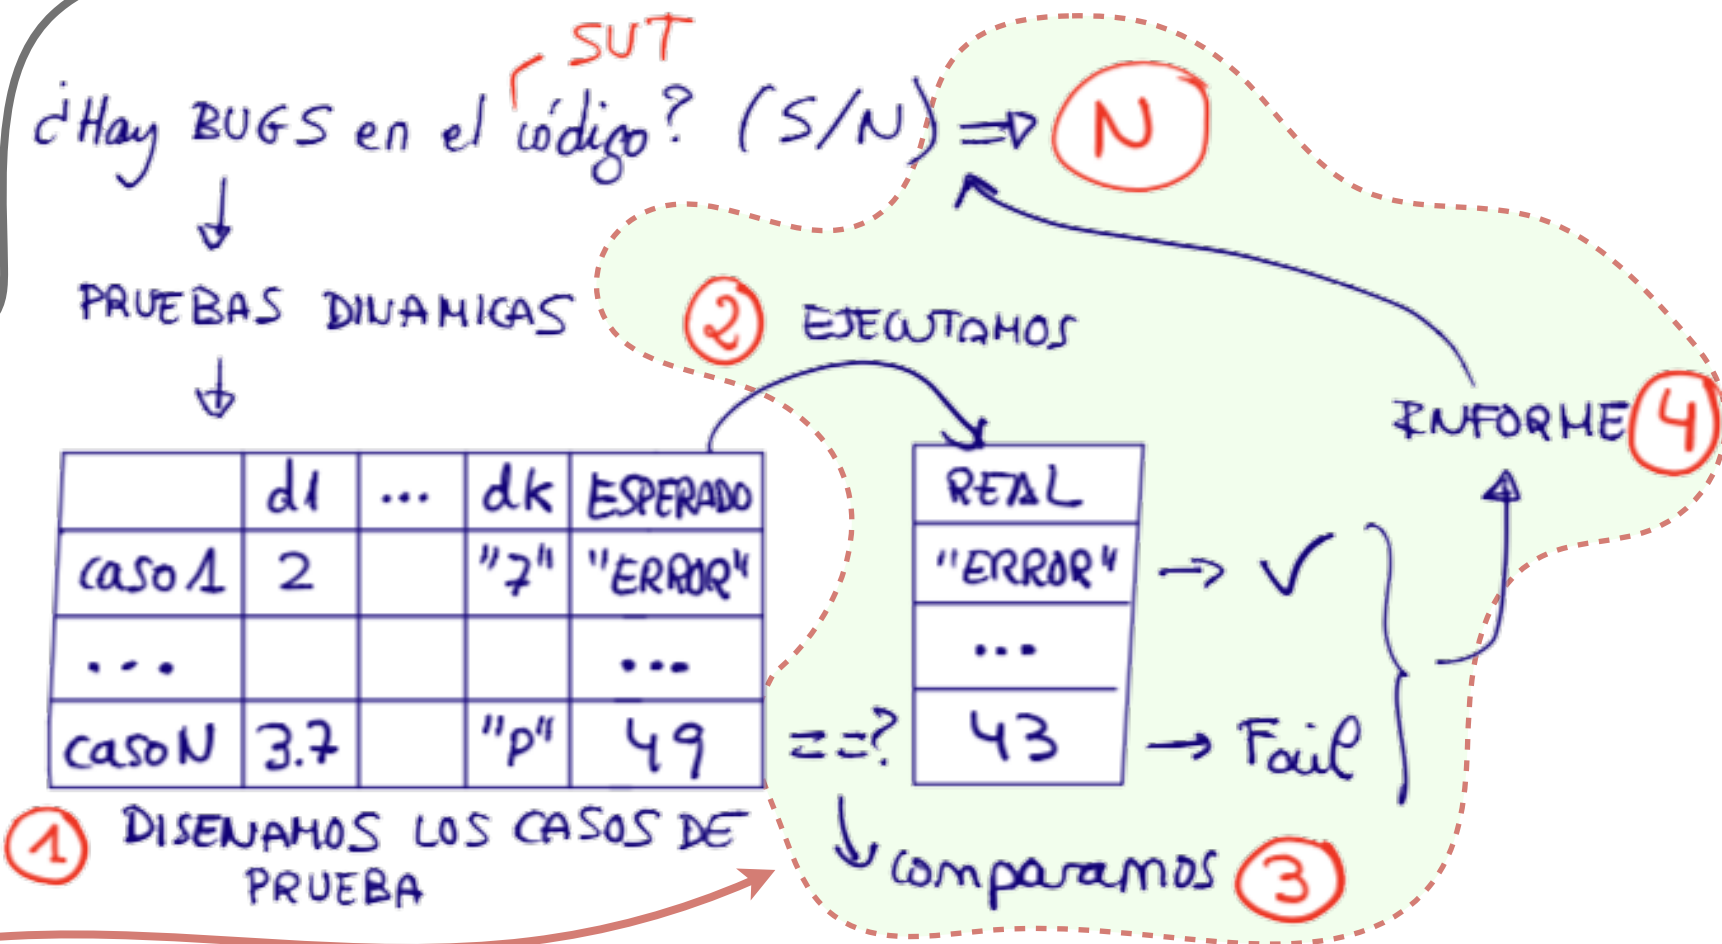 SUT
¿Hay BUGS en el código? (S/N) ⇒ N
PRUEBAS DINAMICAS
2 EJECUTAMOS
INFORME 4
d1 ... dk ESPERADO
REAL
caso 1 2 "7" "ERROR"
"ERROR" → ✓
... ...
...
caso N 3.7 "P" 49 ==? 43 → Fail
1 DISENAMOS LOS CASOS DE
PRUEBA
comparamos 3